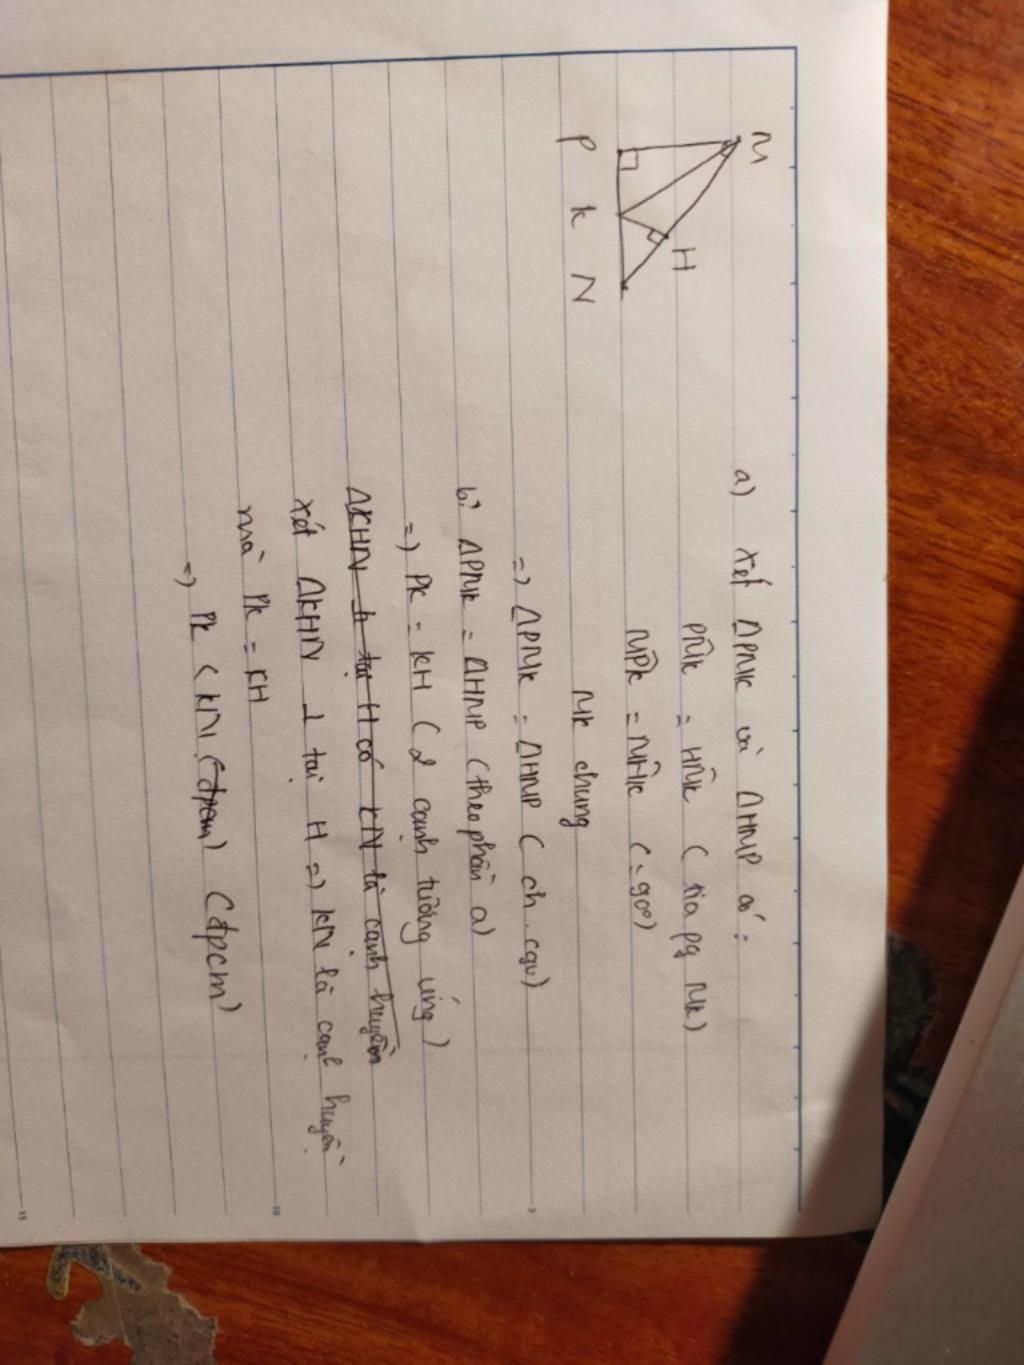 M
H
P K N
a) Xét ΔPMK và ΔHMP có:
PM̂K = HM̂K ( tia pg MK)
MP̂K = MĤK (= 90°)
MK chung
=> ΔPMK = ΔHMP ( ch . cgv)
b? ΔPMK = ΔHMP (theo phần a)
=> PK = KH ( 2 cạnh tương ứng )
ΔKHN tại H có KN là cạnh huyền
Xét ΔKHN ⊥ tại H => KN là cạnh huyền
mà PK = KH
=> PK < KN (đpcm) (đpcm)
5
10
15